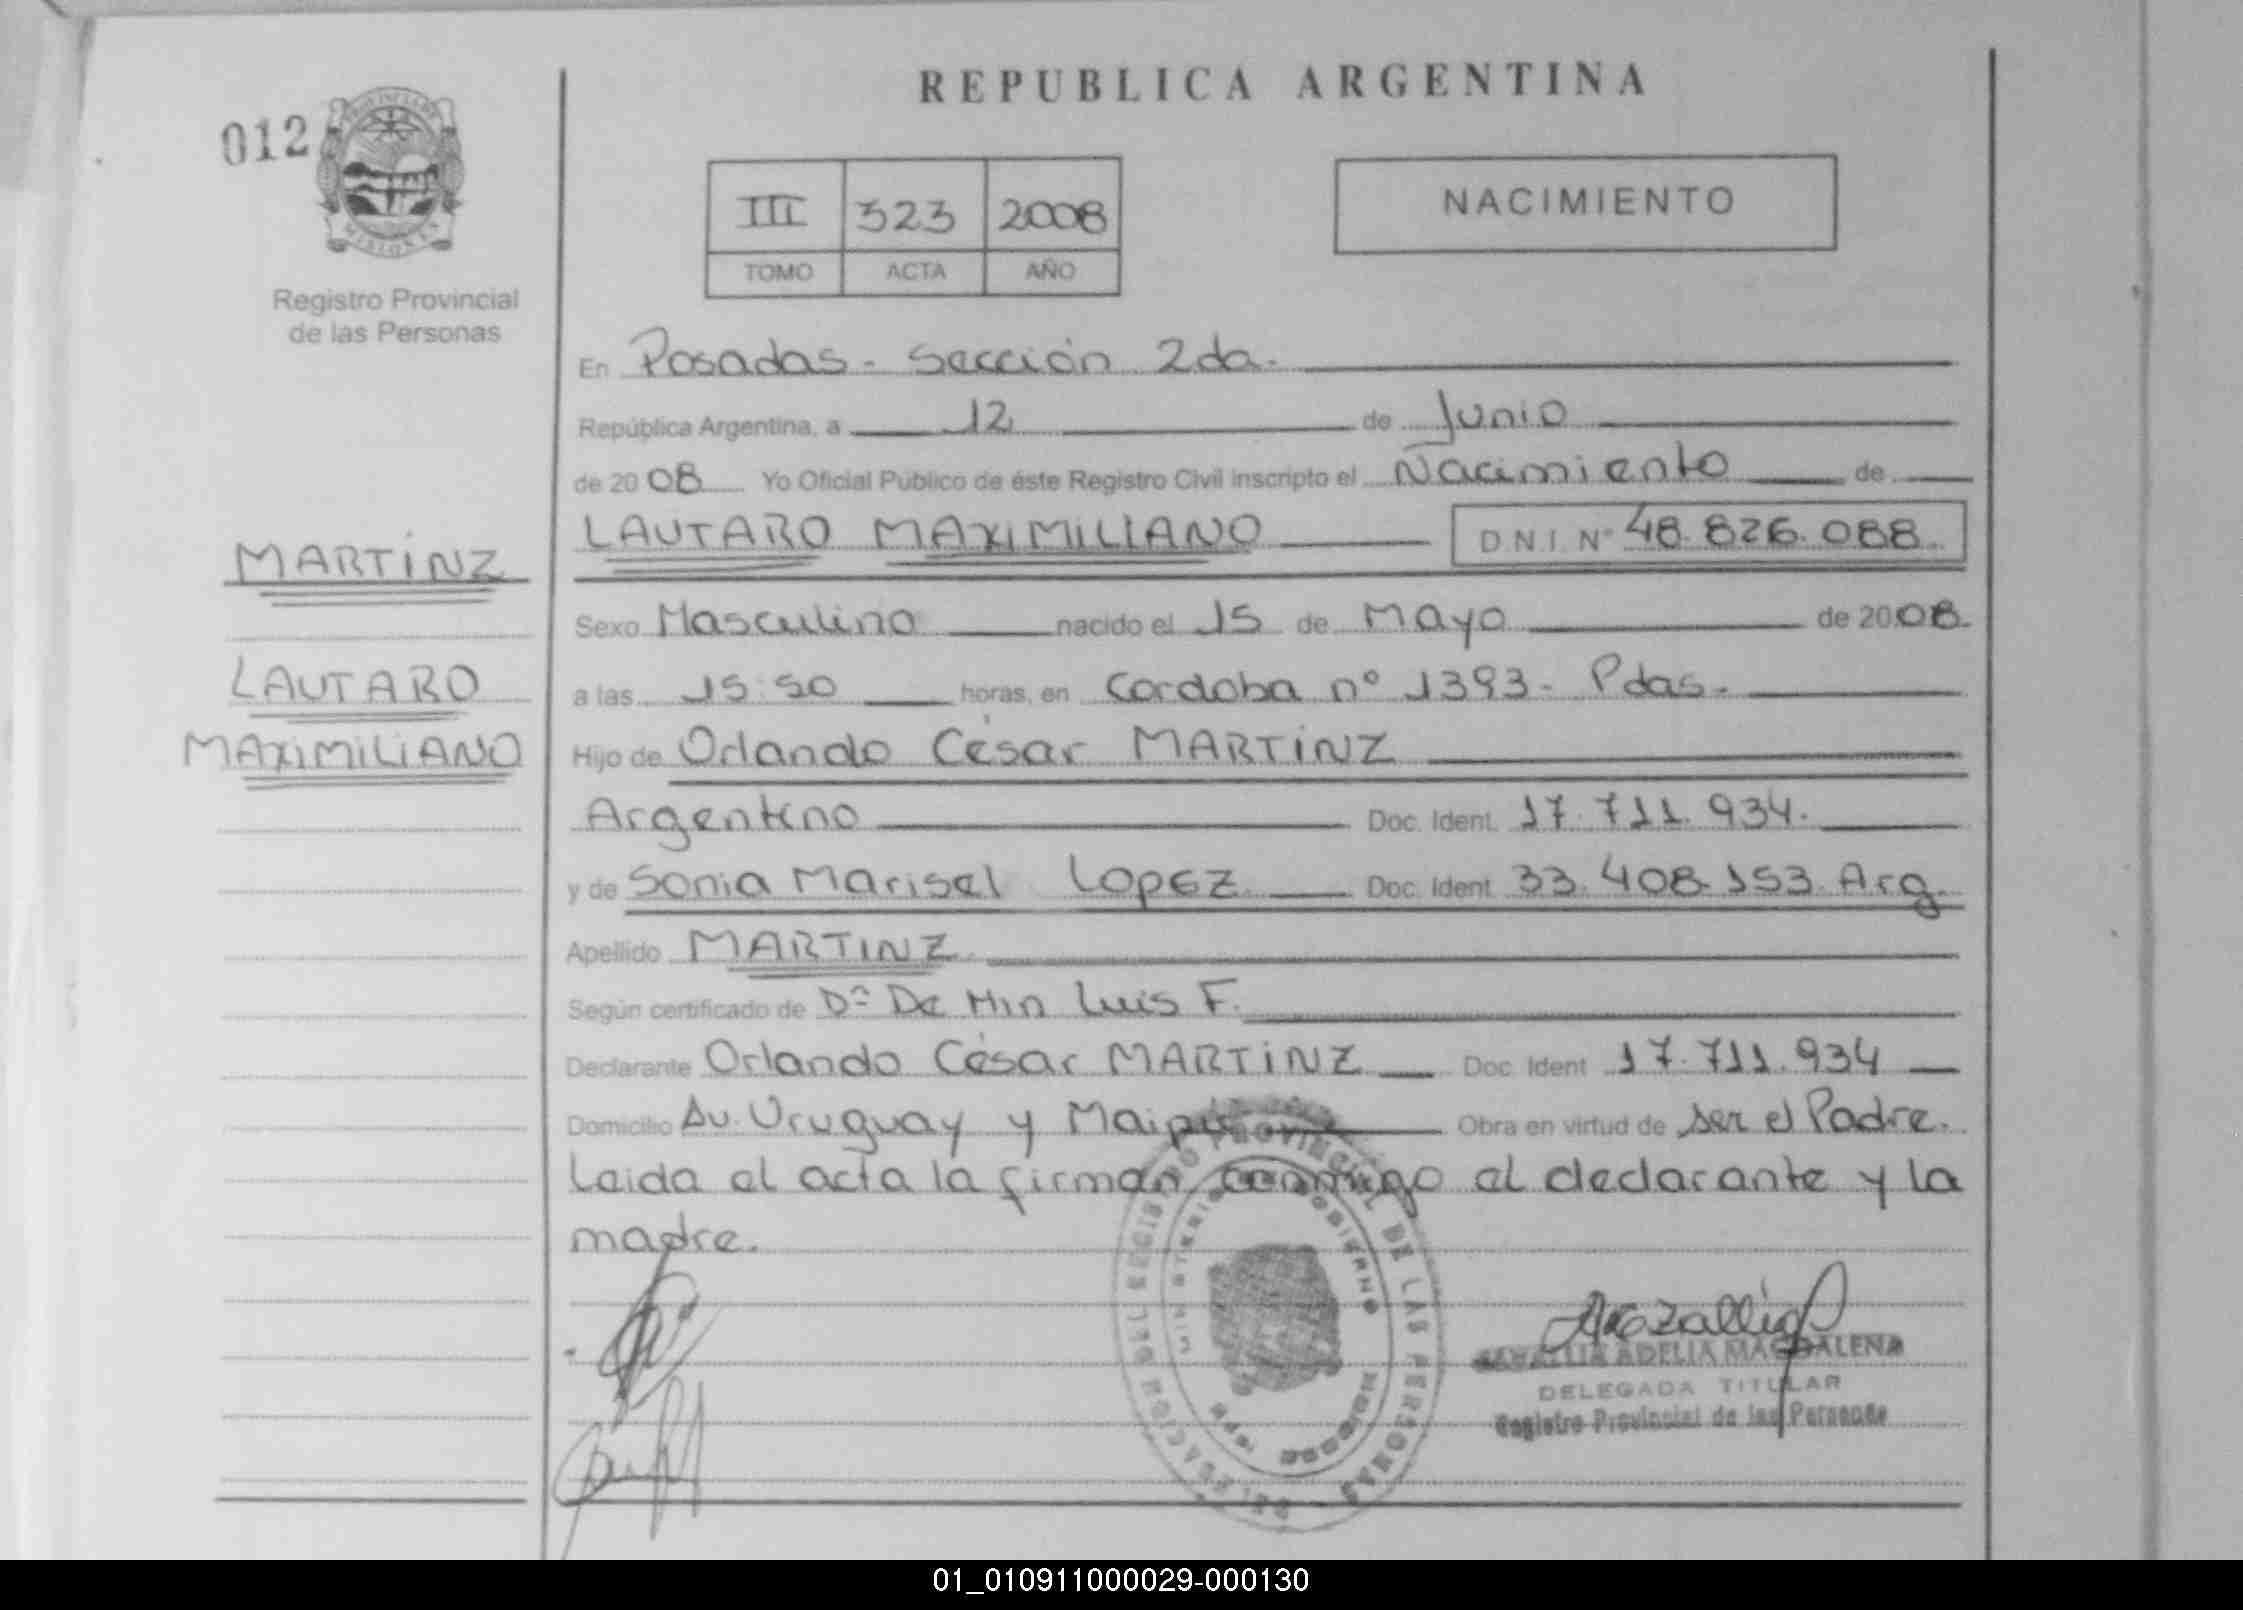 REPUBLICA ARGENTINA
012
MISIONES
Registro Provincial
de las Personas
III 323 2008
TOMO ACTA AÑO
NACIMIENTO
En Posadas - Sección 2da.
República Argentina, a 12 de Junio
de 2008 Yo Oficial Público de éste Registro Civil inscripto el Nacimiento de
LAUTARO MAXIMILIANO D.N.I. Nº 48.826.088
MARTÍNZ
LAUTARO
MAXIMILIANO
Sexo Masculino nacido el 15 de Mayo de 2008
a las 15:50 horas, en Cordoba nº 1393 - Pdas.
Hijo de Orlando César MARTíNZ
Argentino Doc. Ident. 17.711.934.
y de Sonia Marisel LOPEZ Doc. Ident. 33.408.153 Arg.
Apellido MARTINZ
Según certificado de De Luis F.
Declarante Orlando César MARTíNZ Doc. Ident 17.711.934
Domicilio Av. Uruguay y Maipú Obra en virtud de ser el Padre.
Leida el acta la firman conmigo el declarante y la
madre.
REGISTRO PROVINCIAL DE LAS PERSONAS
ADELIA MAGDALENA
DELEGADA TITULAR
Registro Provincial de las Personas
01_010911000029-000130